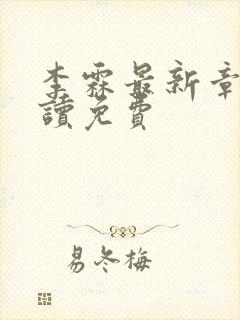 李霖最新章
讀免費
易冬梅